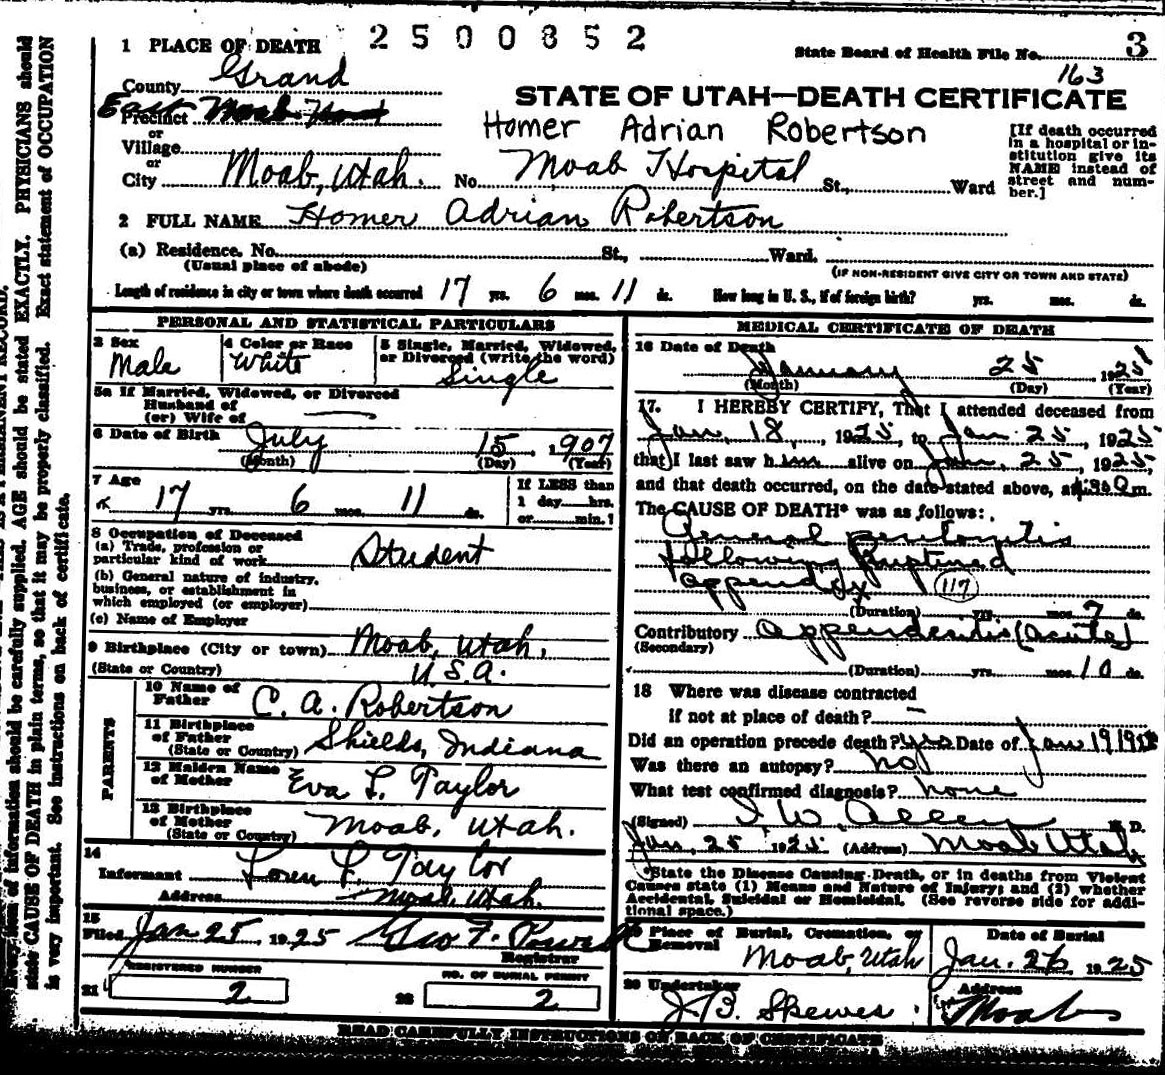 1 PLACE OF DEATH 2500852 State Board of Health File No. 3
County Grand 163
STATE OF UTAH—DEATH CERTIFICATE
East Precinct Moab
or
Village
Homer Adrian Robertson
or
City Moab, Utah. No. Moab Hospital St., Ward
[If death occurred
in a hospital or in-
stitution give its
NAME instead of
street and num-
ber.]
2 FULL NAME Homer Adrian Robertson
(a) Residence. No. St., Ward.
(Usual place of abode) (IF NON-RESIDENT GIVE CITY OR TOWN AND STATE)
Length of residence in city or town where death occurred 17 yrs. 6 mos. 11 ds. How long in U. S., if of foreign birth? yrs. mos. ds.
PERSONAL AND STATISTICAL PARTICULARS
3 Sex Male
4 Color or Race White
5 Single, Married, Widowed,
or Divorced (write the word)
Single
5a If Married, Widowed, or Divorced
Husband of
(or) Wife of
6 Date of Birth July 15, 1907
(Month) (Day) (Year)
7 Age 17 yrs. 6 mos. 11 ds.
If LESS than
1 day hrs.
or min.?
8 Occupation of Deceased
(a) Trade, profession or
particular kind of work Student
(b) General nature of industry,
business, or establishment in
which employed (or employer)
(c) Name of Employer
9 Birthplace (City or town) Moab, Utah.
(State or Country) U.S.A.
PARENTS
10 Name of
Father C. A. Robertson
11 Birthplace
of Father
(State or Country) Shields, Indiana
12 Maiden Name
of Mother Eva L. Taylor
13 Birthplace
of Mother
(State or Country) Moab, Utah.
14
Informant Loren L. Taylor
Address Moab, Utah.
15
Filed Jan 25 1925 Geo F. Powell
Registrar
REGISTERED NUMBER
21 2
NO. OF BURIAL PERMIT
22 2
MEDICAL CERTIFICATE OF DEATH
16 Date of Death
January 25 1925
(Month) (Day) (Year)
17. I HEREBY CERTIFY, That I attended deceased from
Jan. 18, 1925, to Jan. 25, 1925,
that I last saw him alive on Jan. 25, 1925,
and that death occurred, on the date stated above, at m.
The CAUSE OF DEATH* was as follows:
General peritonitis
following Ruptured
appendix (117)
(Duration) yrs. mos. 7 ds.
Contributory Appendicitis (acute)
(Secondary)
(Duration) yrs. mos. 10 ds.
18 Where was disease contracted
if not at place of death?
Did an operation precede death? yes Date of Jan 19 1925
Was there an autopsy? no
What test confirmed diagnosis? none
(Signed) I. W. Allen M. D.
Jan, 25 1925 (Address) Moab Utah
*State the Disease Causing Death, or in deaths from Violent
Causes state (1) Means and Nature of Injury; and (2) whether
Accidental, Suicidal or Homicidal. (See reverse side for addi-
tional space.)
19 Place of Burial, Cremation, or
Removal Moab, Utah
Date of Burial
Jan. 26, 1925
20 Undertaker
J. B. Skewes.
Address
Moab
READ CAREFULLY INSTRUCTIONS ON BACK OF CERTIFICATE
of information should be carefully supplied. AGE should be stated EXACTLY. PHYSICIANS should
state CAUSE OF DEATH in plain terms, so that it may be properly classified. Exact statement of OCCUPATION
is very important. See instructions on back of certificate.